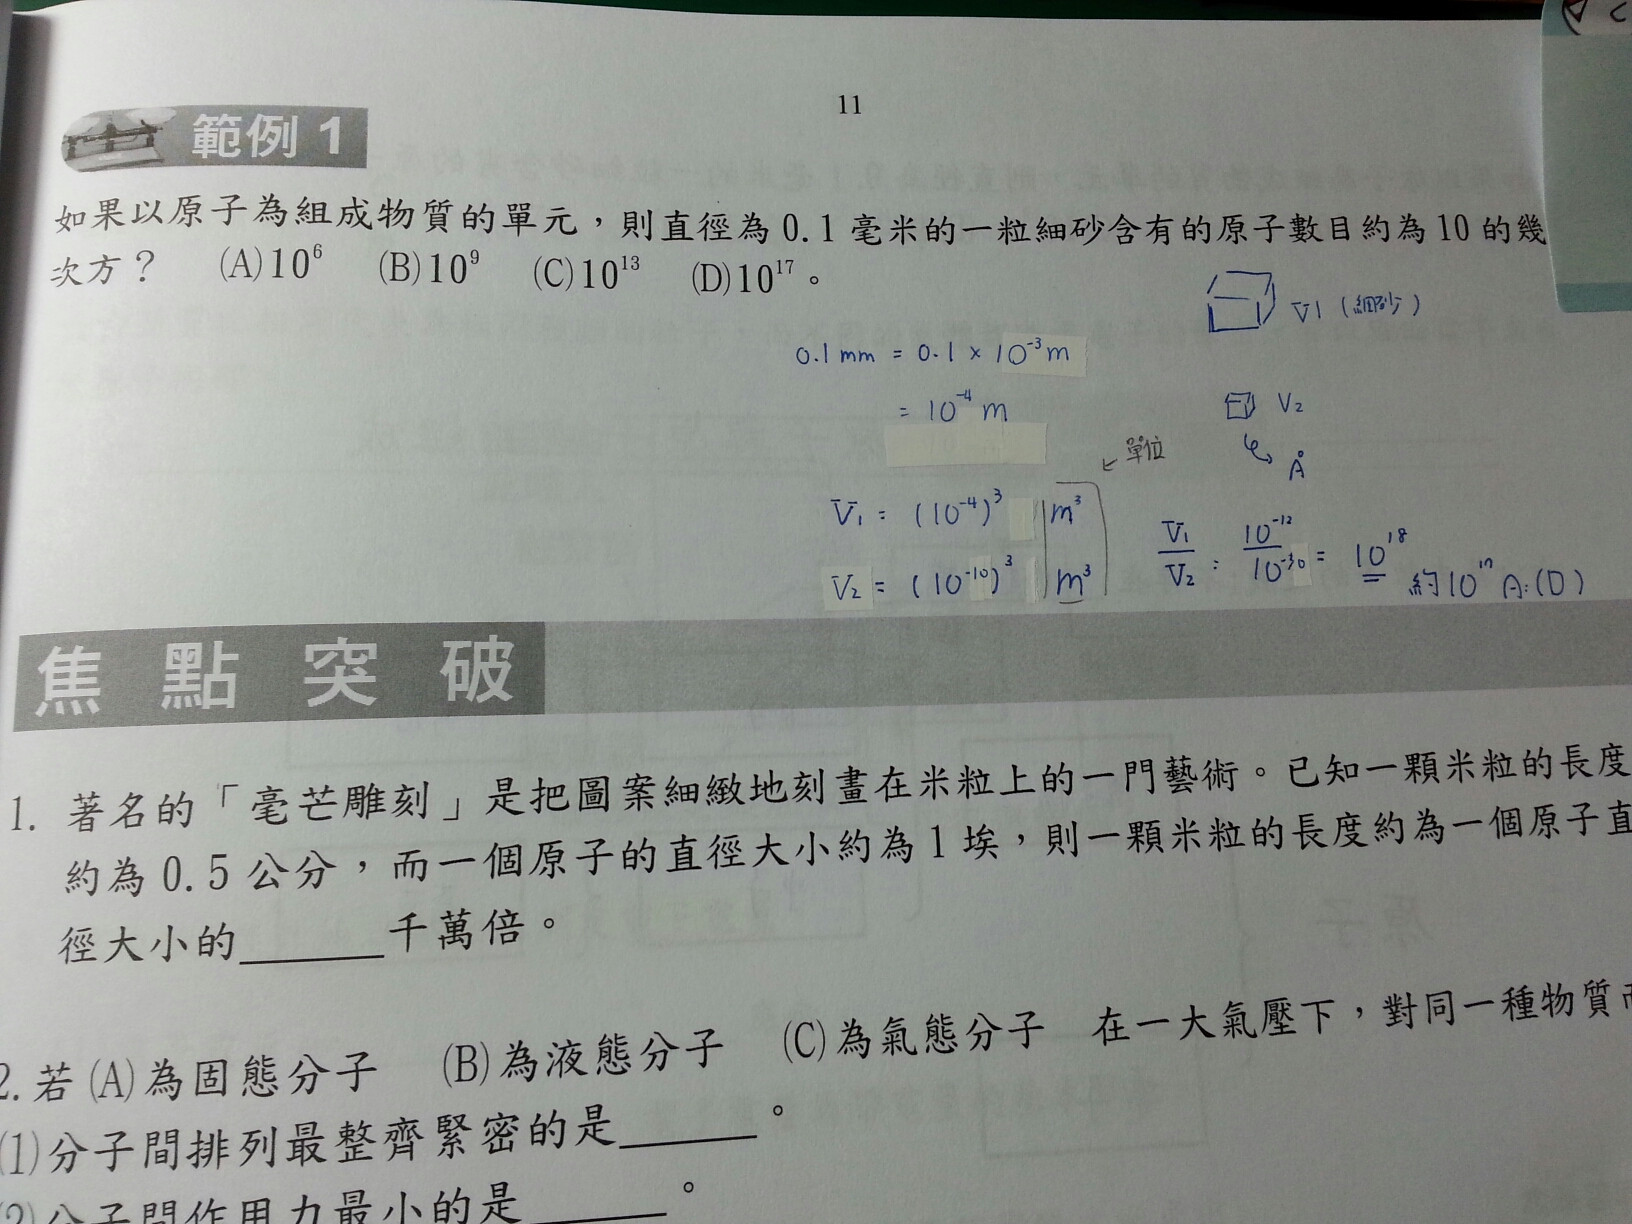 11
範例 1
如果以原子為組成物質的單元，則直徑為 0.1 毫米的一粒細砂含有的原子數目約為 10 的幾
次方？ (A)10⁶ (B)10⁹ (C)10¹³ (D)10¹⁷。
V1 (細砂)
0.1 mm = 0.1 × 10⁻³ m
= 10⁻⁴ m
V₂
Å
單位
V₁ = (10⁻⁴)³ m³
V₂ = (10⁻¹⁰)³ m³
V₁/V₂ : 10⁻¹²/10⁻³⁰ = 10¹⁸
約10¹⁷ A:(D)
焦點突破
1. 著名的「毫芒雕刻」是把圖案細緻地刻畫在米粒上的一門藝術。已知一顆米粒的長度
約為 0.5 公分，而一個原子的直徑大小約為 1 埃，則一顆米粒的長度約為一個原子直
徑大小的______千萬倍。
2. 若 (A)為固態分子 (B)為液態分子 (C)為氣態分子 在一大氣壓下，對同一種物質而
(1)分子間排列最整齊緊密的是______。
(2)分子間作用力最小的是______。
原子